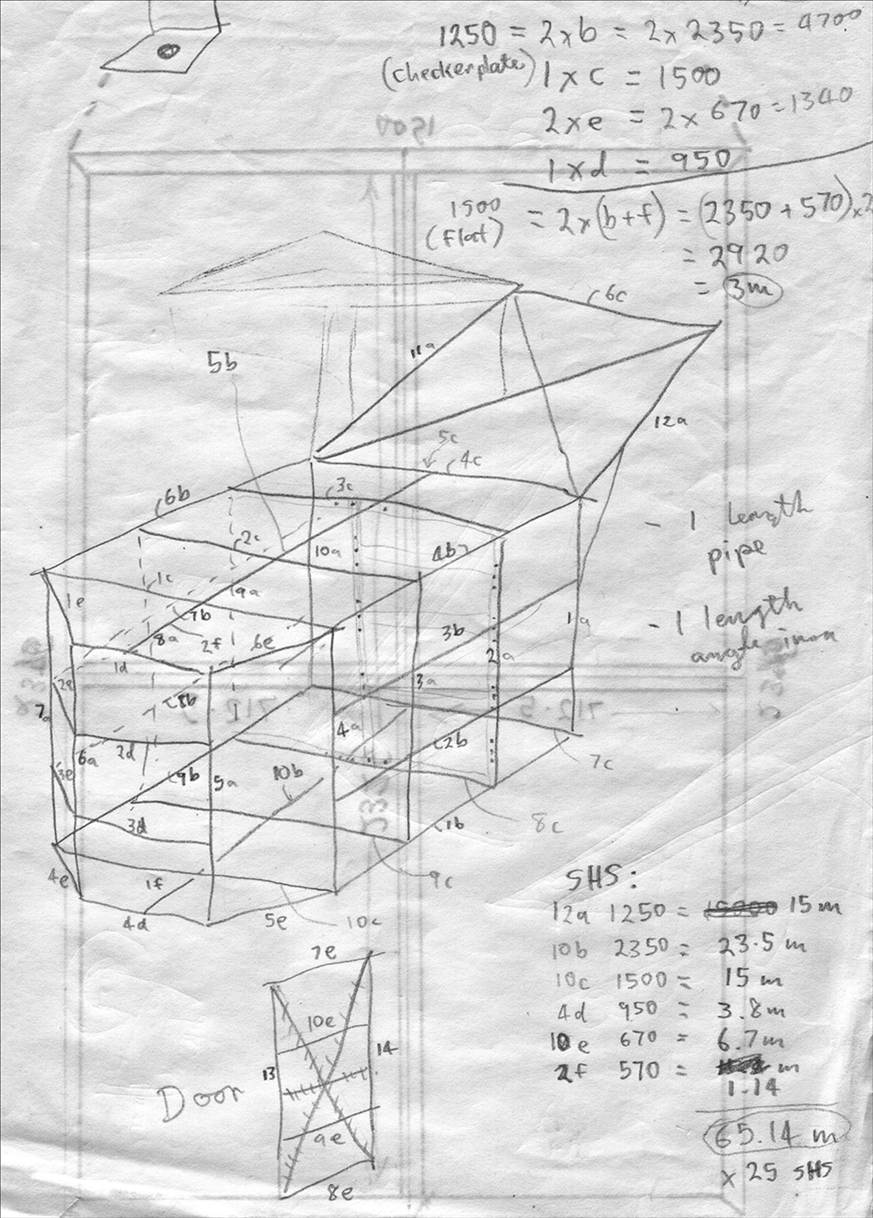 1250 = 2×b = 2×2350 = 4700
(checkerplate) 1×c = 1500
2×e = 2×670 = 1340
1×d = 950
1500 = 2×(b+f) = (2350 + 570)×2
(flat) = 2920
= 3m
1500
6c
11a
5b
12a
5c
4c
6b
3c
- 1 length
pipe
2c
10a
4b
1c
9a
1e
7b
- 1 length
angle iron
8a
2f
6e
3b
1a
1d
2a
2340
2e
3a
8b
712.5
712.5
7a
4a
6a
2d
2b
7c
3e
9b
5a
10b
3d
1b
8c
4e
1f
9c
SHS:
4d
5e
10c
12a 1250 = 15m
10b 2350 = 23.5 m
10c 1500 = 15 m
4d 950 = 3.8m
10e 670 = 6.7m
2f 570 = m
1.14
65.14 m
× 25 SHS
7e
10e
13
14
Door
9e
8e